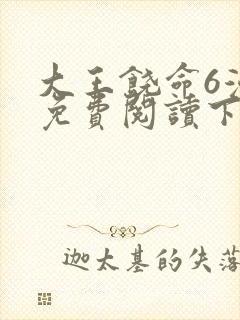 大王饶命6
免費閱讀下
迦太基的失落